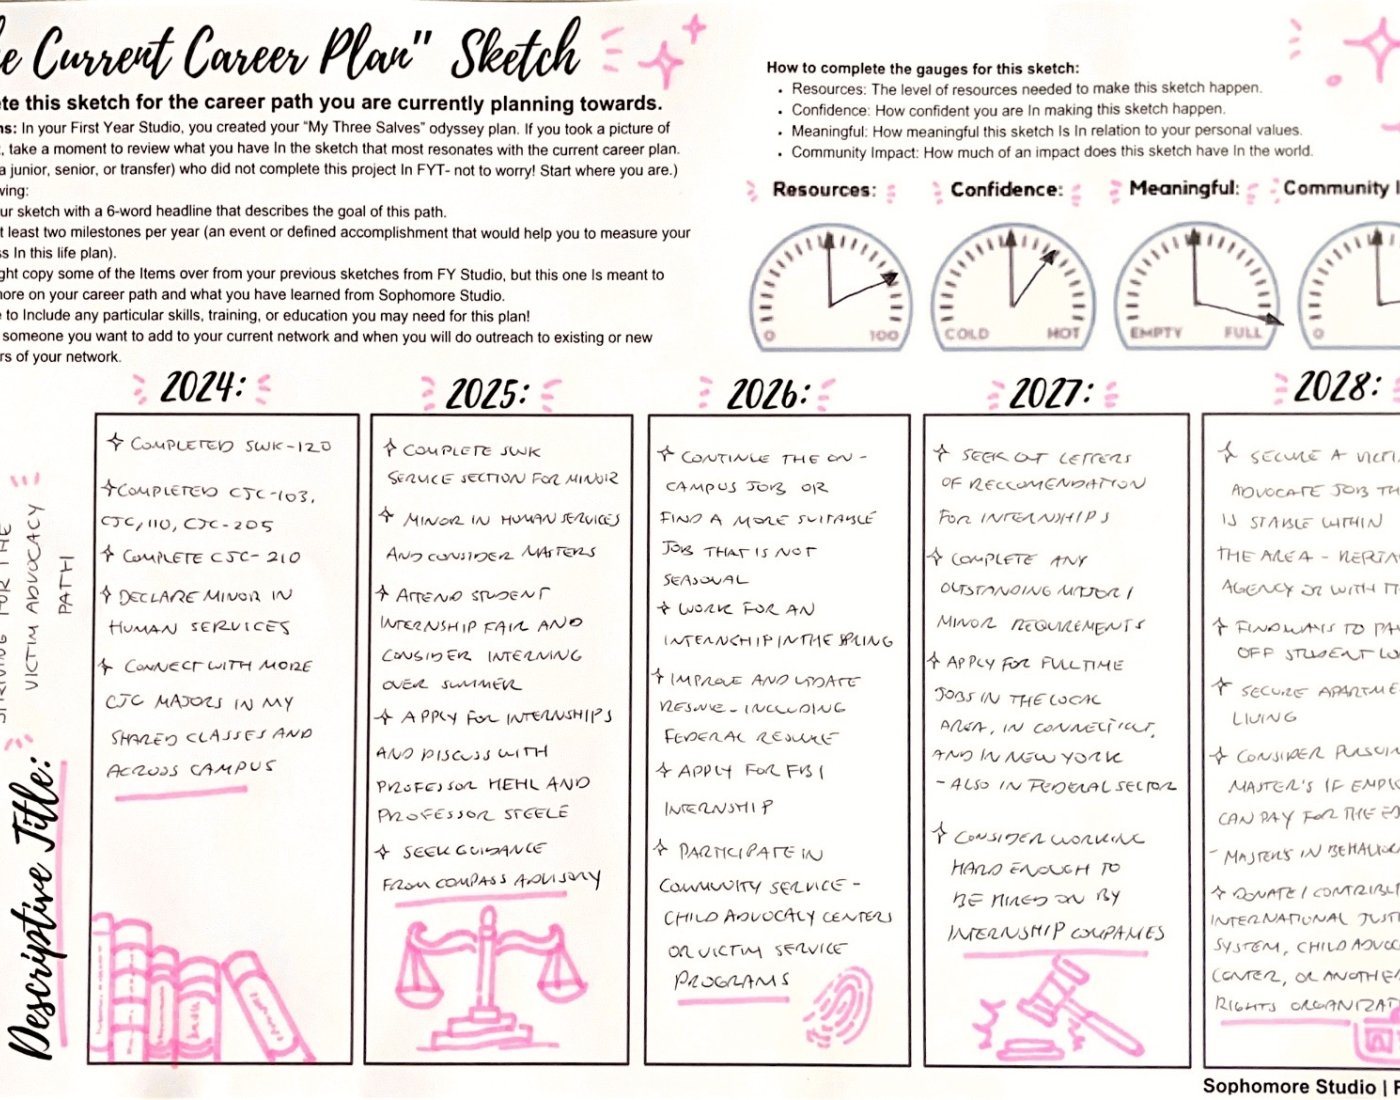 e Current Career Plan" Sketch
te this sketch for the career path you are currently planning towards.
ns: In your First Year Studio, you created your "My Three Salves" odyssey plan. If you took a picture of
, take a moment to review what you have In the sketch that most resonates with the current career plan.
a junior, senior, or transfer) who did not complete this project In FYT- not to worry! Start where you are.)
wing:
ur sketch with a 6-word headline that describes the goal of this path.
t least two milestones per year (an event or defined accomplishment that would help you to measure your
ss In this life plan).
ght copy some of the Items over from your previous sketches from FY Studio, but this one Is meant to
nore on your career path and what you have learned from Sophomore Studio.
e to Include any particular skills, training, or education you may need for this plan!
someone you want to add to your current network and when you will do outreach to existing or new
rs of your network.
How to complete the gauges for this sketch:
• Resources: The level of resources needed to make this sketch happen.
• Confidence: How confident you are In making this sketch happen.
• Meaningful: How meaningful this sketch Is In relation to your personal values.
• Community Impact: How much of an impact does this sketch have In the world.
Resources:
0 100
Confidence:
COLD HOT
Meaningful:
EMPTY FULL
Community I
0
Descriptive Title:
STRIVING FOR THE
VICTIM ADVOCACY
PATH
2024:
COMPLETED SWK-120
COMPLETED CJC-103,
CJC,110, CJC-205
COMPLETE CJC-210
DECLARE MINOR IN
HUMAN SERVICES
CONNECT WITH MORE
CJC MAJORS IN MY
SHARED CLASSES AND
ACROSS CAMPUS
2025:
COMPLETE SWK
SERVICE SECTION FOR MINOR
MINOR IN HUMAN SERVICES
AND CONSIDER MASTERS
ATTEND STUDENT
INTERNSHIP FAIR AND
CONSIDER INTERNING
OVER SUMMER
APPLY FOR INTERNSHIPS
AND DISCUSS WITH
PROFESSOR HEHL AND
PROFESSOR STEELE
SEEK GUIDANCE
FROM COMPASS ADVISORY
2026:
CONTINUE THE ON-
CAMPUS JOB OR
FIND A MORE SUITABLE
JOB THAT IS NOT
SEASONAL
WORK FOR AN
INTERNSHIP IN THE SPRING
IMPROVE AND UPDATE
RESUME - INCLUDING
FEDERAL RESUME
APPLY FOR FBI
INTERNSHIP
PARTICIPATE IN
COMMUNITY SERVICE -
CHILD ADVOCACY CENTERS
OR VICTIM SERVICE
PROGRAMS
2027:
SEEK OUT LETTERS
OF RECCOMENDATION
FOR INTERNSHIPS
COMPLETE ANY
OUTSTANDING MAJOR /
MINOR REQUIREMENTS
APPLY FOR FULL TIME
JOBS IN THE LOCAL
AREA, IN CONNECTICUT,
AND IN NEW YORK
- ALSO IN FEDERAL SECTOR
CONSIDER WORKING
HARD ENOUGH TO
BE HIRED ON BY
INTERNSHIP COMPANIES
2028:
SECURE A VICTI
ADVOCATE JOB TH
IS STABLE WITHIN
THE AREA -
AGENCY OR WITH
FIND WAYS TO PA
OFF STUDENT LO
SECURE APARTME
LIVING
CONSIDER PURSUIN
MASTER'S IF EMPL
CAN PAY FOR THE E
- MASTERS IN BEHAVIOR
DONATE / CONTRIBUT
INTERNATIONAL JUSTI
SYSTEM, CHILD ADVOC
CENTER, OR ANOTHE
RIGHTS ORGANIZAT
Sophomore Studio | F